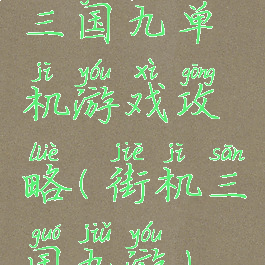 三国九单
jī yóu xì gōng
机游戏攻
lüè jiē jī sān
略(街机三
guó jiǔ yóu
国九游)